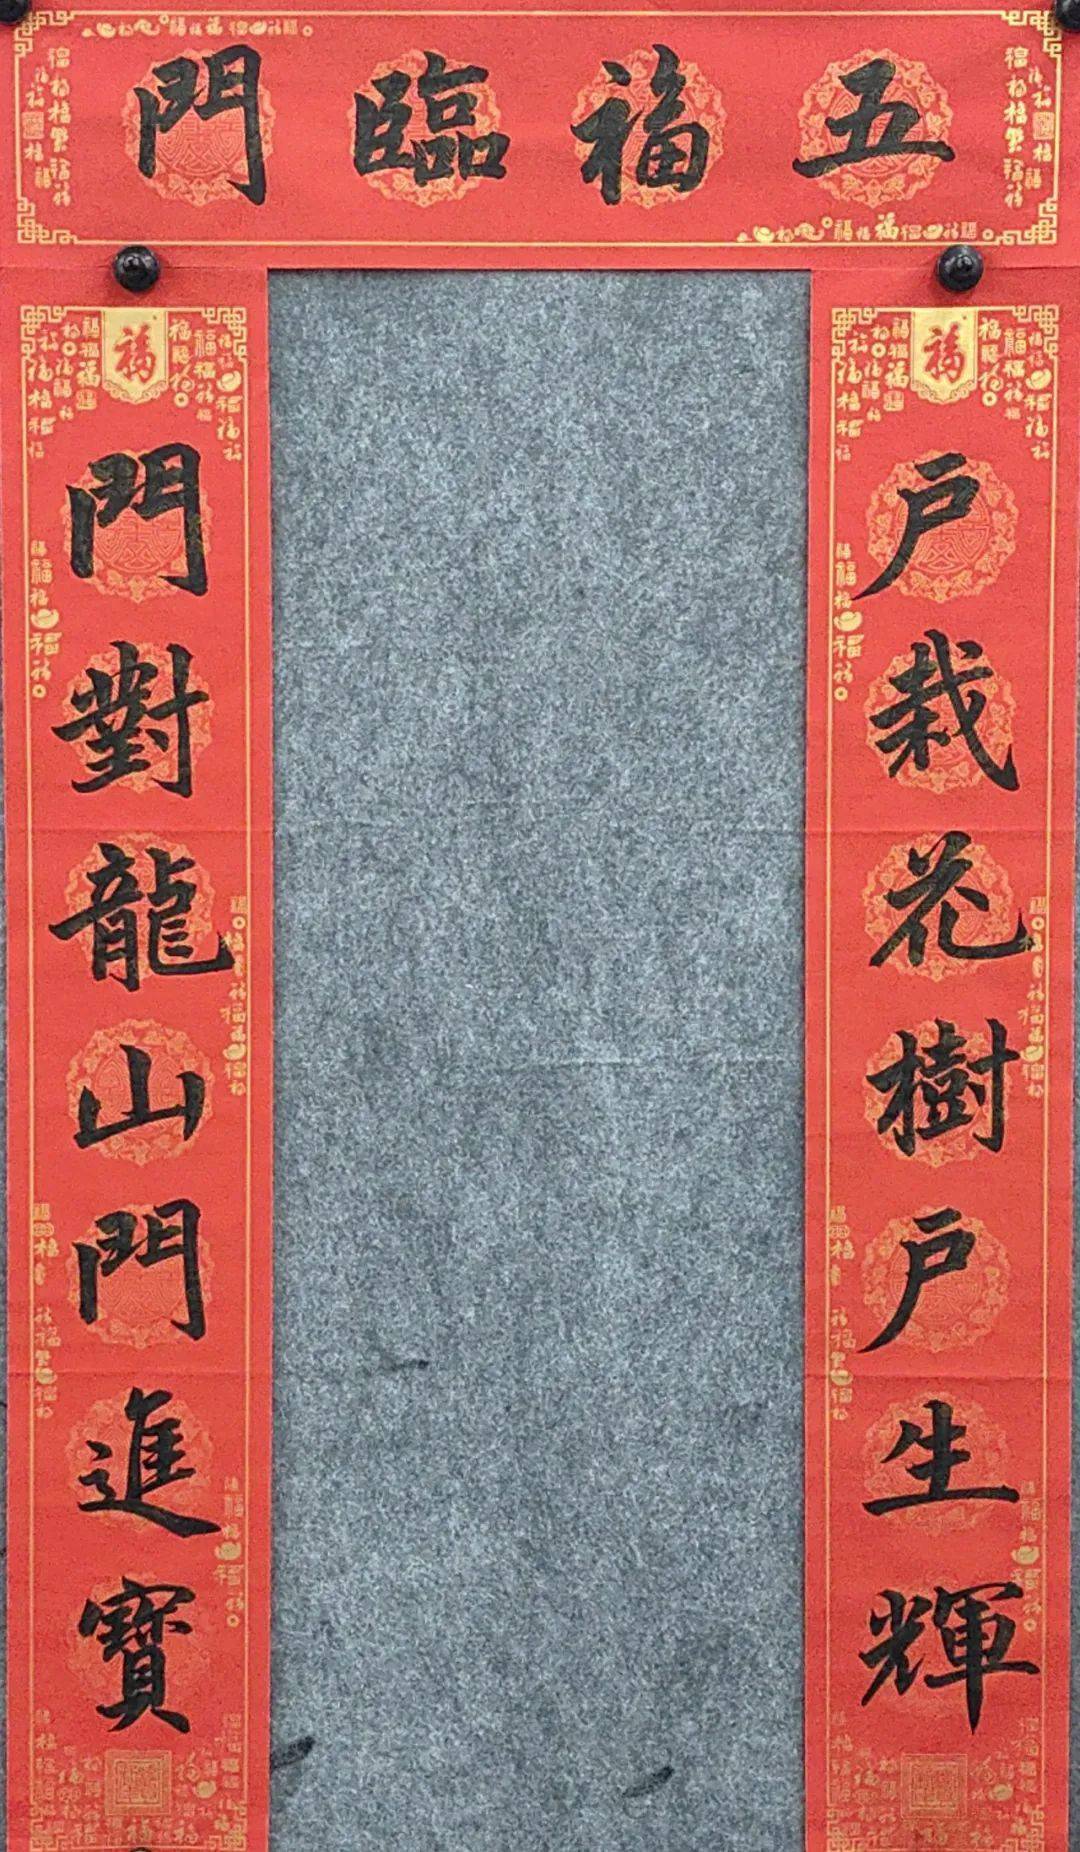 五福臨門
戶栽花樹戶生輝
門對龍山門進寶
福
福